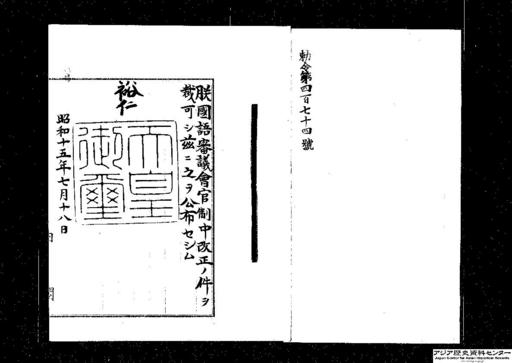 勅令第四百七十四號
朕國語審議會官制中改正ノ件ヲ
裁可シ茲ニ之ヲ公布セシム
裕仁
天皇
御璽
昭和十五年七月十八日
アジア歴史資料センター
Japan Center for Asian Historical Records